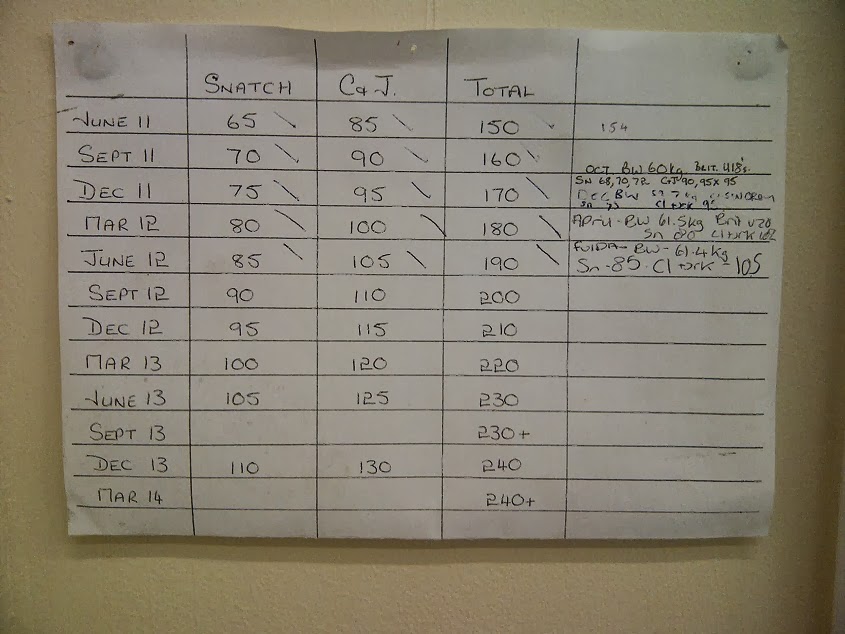 SNATCH C&J. TOTAL
JUNE 11 65 85 150 154
SEPT 11 70 90 160
OCT BW 60kg BRIT. U18's
DEC 11 75 95 170
SN 68, 70, 72 C+J 90, 95X 95
DEC BW
MAR 12 80 100 180
APRIL - BW 61.5kg Brit U20
Sn 80 Cl+Jrk 102
JUNE 12 85 105 190
BW - 61.4kg
Sn - 85 - Cl +Jrk - 105
SEPT 12 90 110 200
DEC 12 95 115 210
MAR 13 100 120 220
JUNE 13 105 125 230
SEPT 13 230+
DEC 13 110 130 240
MAR 14 240+